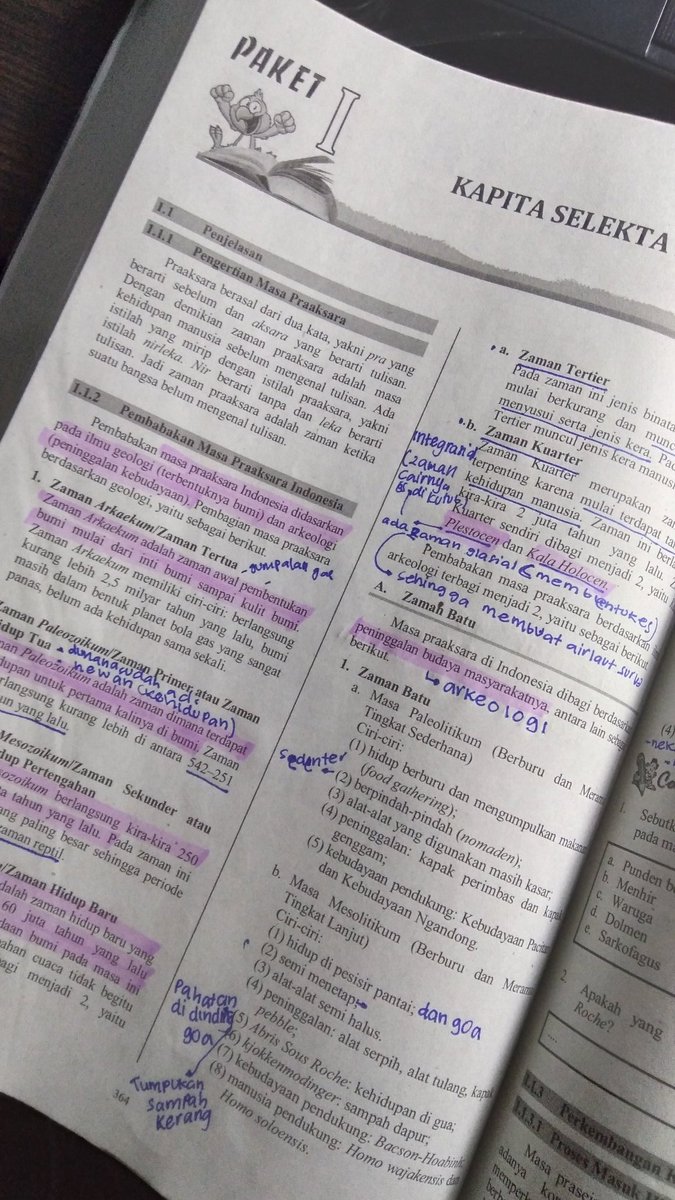 PAKET I
KAPITA SELEKTA
I.1 Penjelasan
I.1.1 Pengertian Masa Praaksara
Praaksara berasal dari dua kata, yakni pra yang
berarti sebelum dan aksara yang berarti tulisan.
Dengan demikian zaman praaksara adalah masa
kehidupan manusia sebelum mengenal tulisan. Ada
istilah yang mirip dengan istilah praaksara, yakni
istilah nirleka. Nir berarti tanpa dan leka berarti
tulisan. Jadi zaman praaksara adalah zaman ketika
suatu bangsa belum mengenal tulisan.
I.1.2 Pembabakan Masa Praaksara Indonesia
Pembabakan masa praaksara Indonesia didasarkan
pada ilmu geologi (terbentuknya bumi) dan arkeologi
(peninggalan kebudayaan). Pembagian masa praaksara
berdasarkan geologi, yaitu sebagai berikut.
1. Zaman Arkaekum/Zaman Tertua - gumpalan gas
Zaman Arkaekum adalah zaman awal pembentukan
bumi mulai dari inti bumi sampai kulit bumi.
Zaman Arkaekum memiliki ciri-ciri: berlangsung
kurang lebih 2.5 milyar tahun yang lalu, bumi
masih dalam bentuk planet bola gas yang sangat
panas, belum ada kehidupan sama sekali.
Zaman Paleozoikum/Zaman Primer atau Zaman
Hidup Tua
dimana udah ada
hewan (kehidupan)
Paleozoikum adalah zaman dimana terdapat
untuk pertama kalinya di bumi. Zaman
berlangsung kurang lebih di antara 542-251
yang lalu.
Mesozoikum/Zaman Sekunder atau
Pertengahan
berlangsung kira-kira 250
tahun yang lalu. Pada zaman ini
yang paling besar sehingga periode
zaman reptil.
/Zaman Hidup Baru
adalah zaman hidup baru yang
60 juta tahun yang lalu
bumi pada masa ini
cuaca tidak begitu
menjadi 2, yaitu
364
a. Zaman Tertier
Pada zaman ini jenis
mulai berkurang dan
menyusui serta jenis kera. Pada
Tertier muncul jenis kera
b. Zaman Kuarter
Zaman Kuarter merupakan
terpenting karena mulai terdapat
kehidupan manusia. Zaman ini
kira-kira 2 juta tahun yang lalu.
Kuarter sendiri dibagi menjadi 2, yaitu
Plestocen dan Kala Holocen
(zaman
cairnya
es di kutub)
ada zaman glasial (membentuk es)
sehingga membuat air laut
Pembabakan masa praaksara berdasarkan
arkeologi terbagi menjadi 2, yaitu sebagai berikut.
A. Zaman Batu
Masa praaksara di Indonesia dibagi
peninggalan budaya masyarakatnya, antara lain
berikut.
arkeologi
1. Zaman Batu
a. Masa Paleolitikum (Berburu dan
Tingkat Sederhana)
Ciri-ciri:
(1) hidup berburu dan mengumpulkan
(food gathering);
Sedenter
(2) berpindah-pindah (nomaden);
(3) alat-alat yang digunakan masih kasar;
(4) peninggalan: kapak perimbas dan
genggam;
(5) kebudayaan pendukung: Kebudayaan
dan Kebudayaan Ngandong.
b. Masa Mesolitikum (Berburu dan
Tingkat Lanjut)
Ciri-ciri:
(1) hidup di pesisir pantai; dan goa
(2) semi menetap;
(3) alat-alat semi halus.
(4) peninggalan: alat serpih, alat tulang,
pebble;
(5) Abris Sous Roche: kehidupan di gua;
(6) kjokkenmodinger: sampah dapur;
(7) kebudayaan pendukung:
(8) manusia pendukung: Homo wajakensis
Homo soloensis.
Pahatan
di dinding
goa
Tumpukan
sampah
kerang
(4)
1. Sebutk
pada
a. Punden
b. Menhir
c. Waruga
d. Dolmen
e. Sarkofagus
2. Apakah yang
Roche?
....
I.1.3 Perkembangan
I.1.3.1 Proses
Masa
adanya